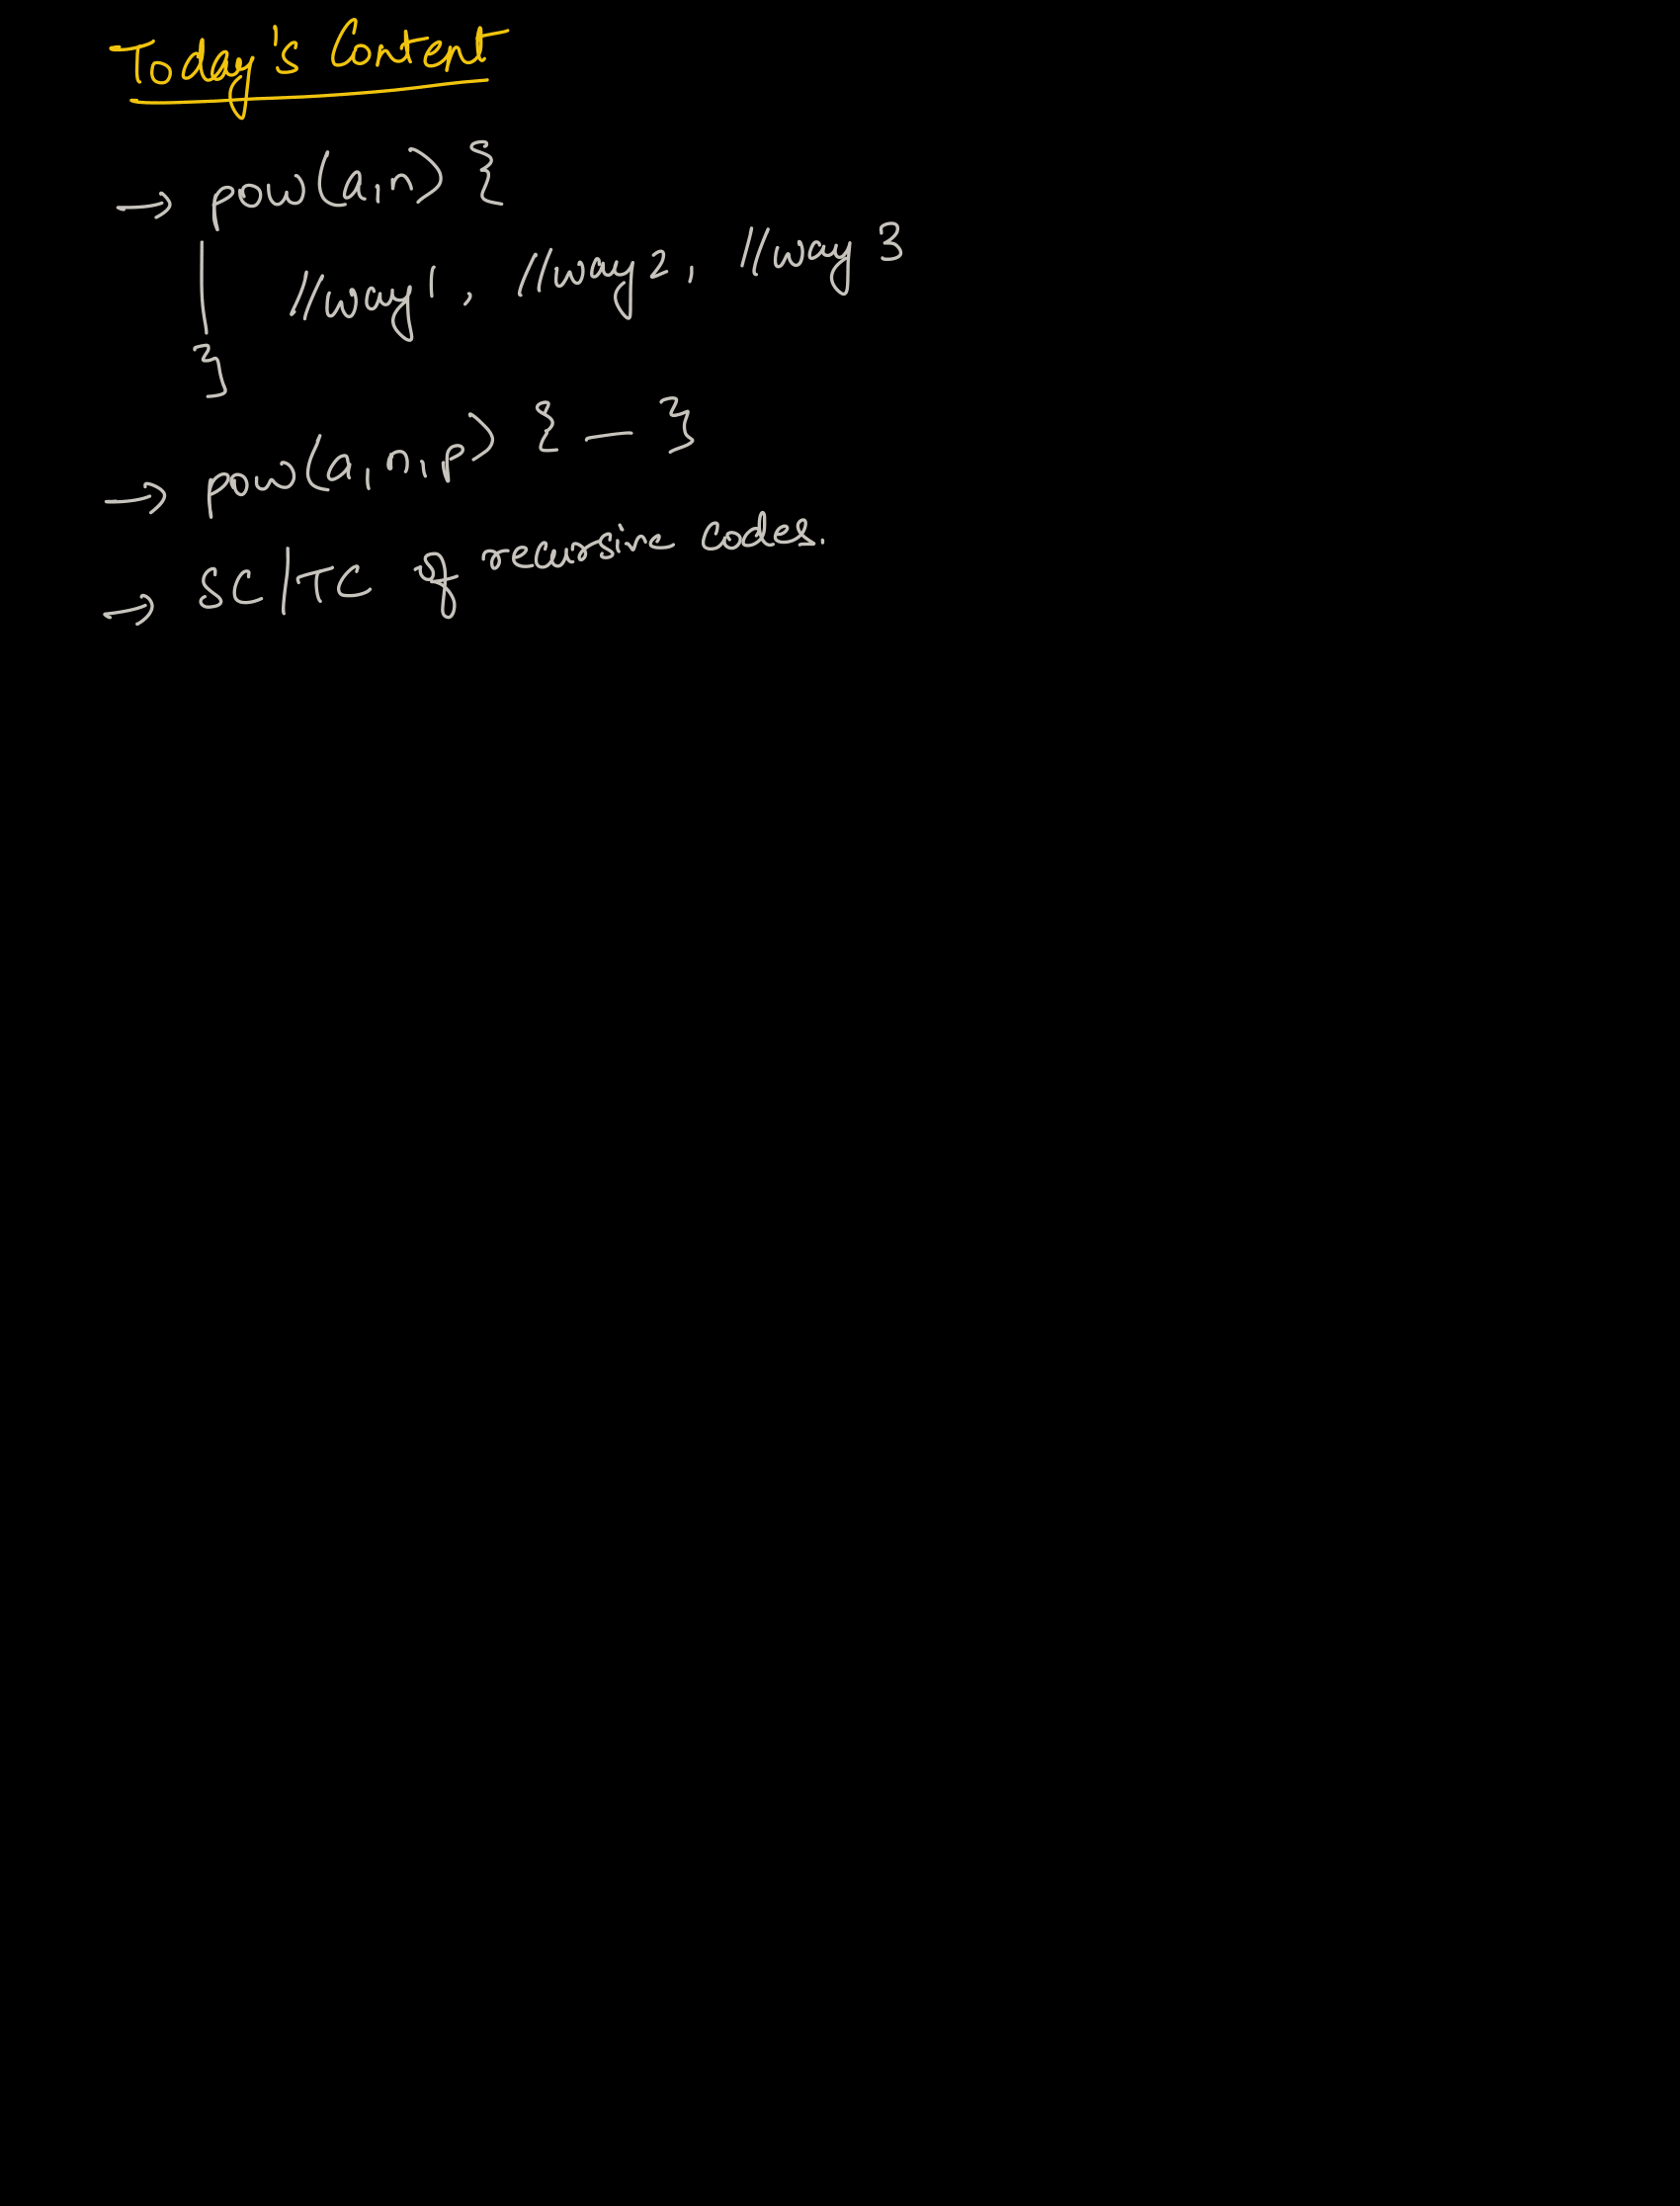 Today's Content
→ pow(a,n) {
//way1, //way2, //way 3
}
→ pow(a,n,p) { — }
→ SC/TC of recursive codes.